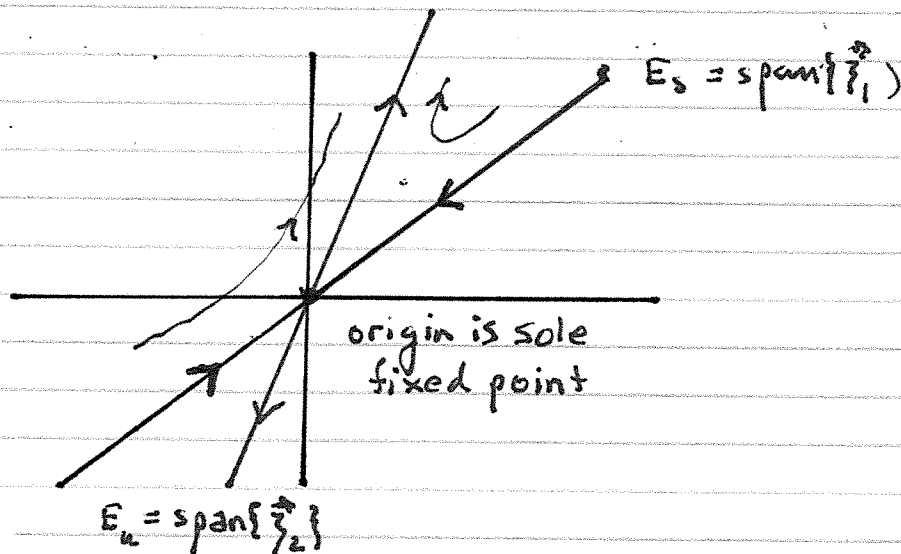 E_s = span{ξ⃗_1)
origin is sole
fixed point
E_u = span{ξ⃗_2}